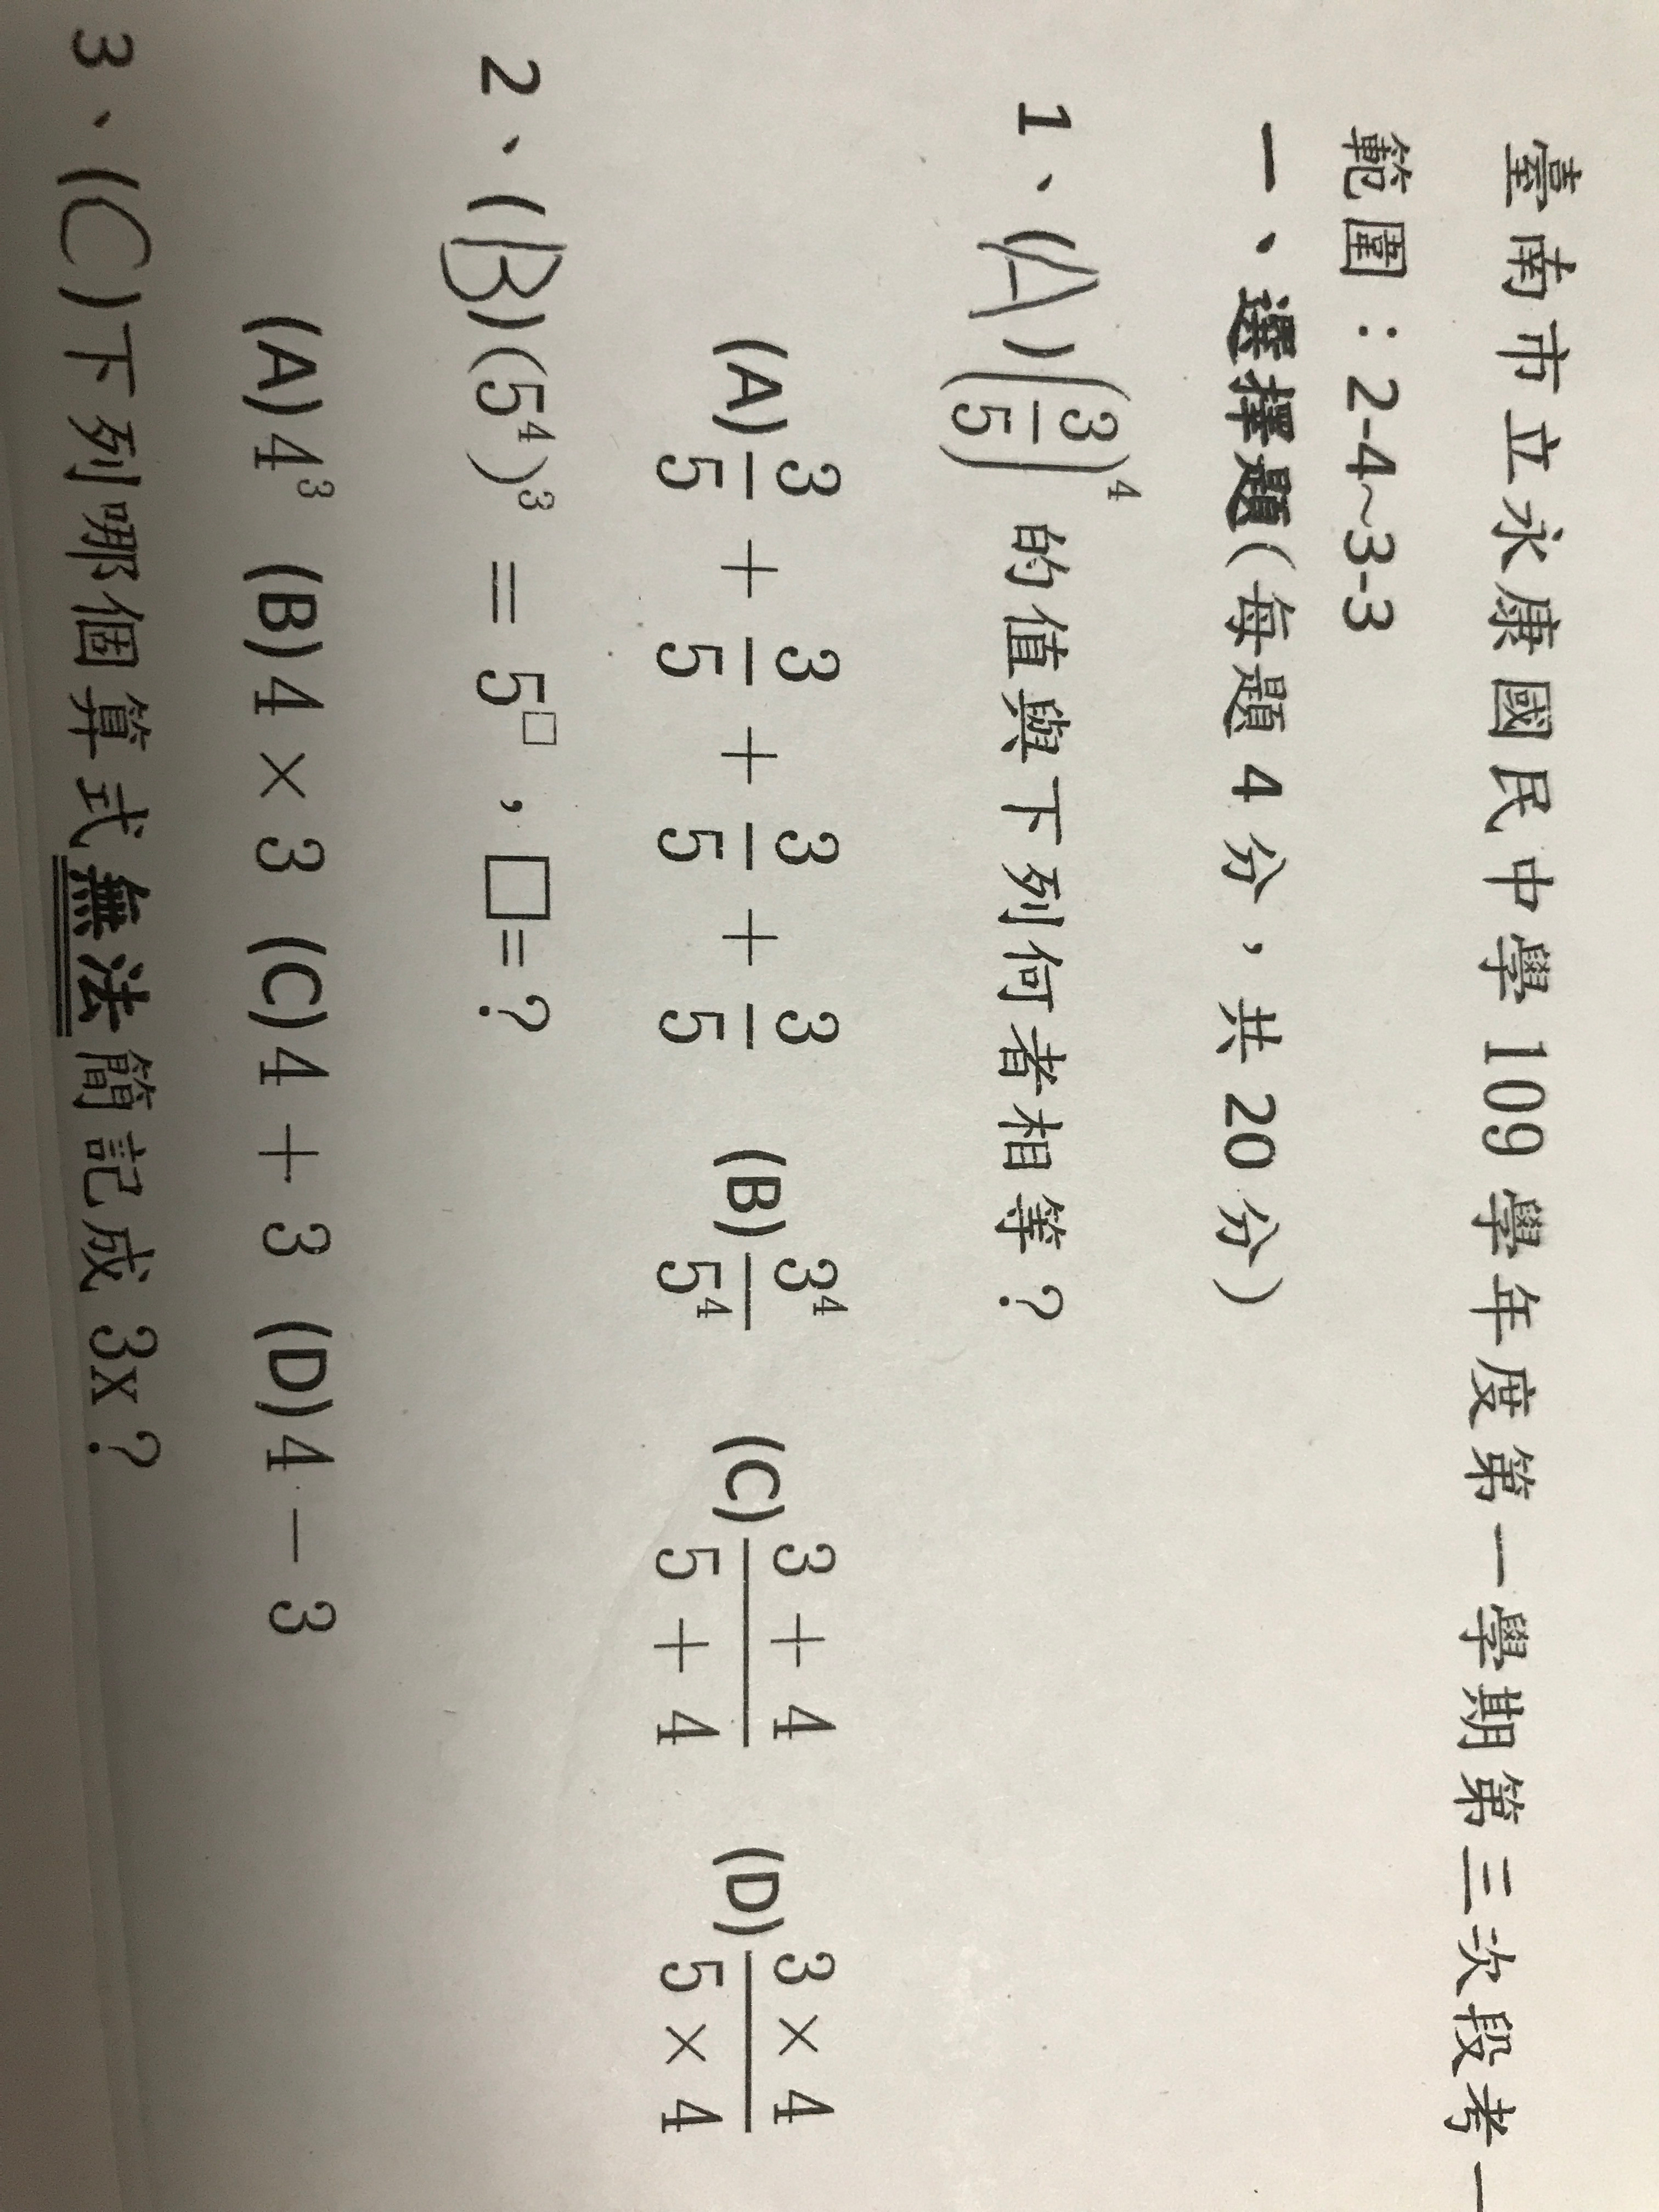 臺南市立永康國民中學 109 學年度第一學期第三次段考一
範圍：2-4~3-3
一、選擇題(每題 4 分，共 20 分)
1、(A)(3/5)⁴ 的值與下列何者相等？
(A) 3/5 + 3/5 + 3/5 + 3/5 (B) 3⁴/5⁴ (C) 3 + 4/5 + 4 (D) 3 × 4/5 × 4
2、(B)(5⁴)³ = 5□，□=？
(A) 4³ (B) 4 × 3 (C) 4 + 3 (D) 4 − 3
3、(C)下列哪個算式無法簡記成 3x？